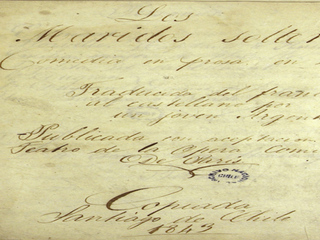 Los
Maridos solte
Comedia en prosa, en
Traducida del fran
al castellano por
un joven Argen
Publicada con
Teatro de la Opera Comi
Copiada
Santiago de Chile
1843